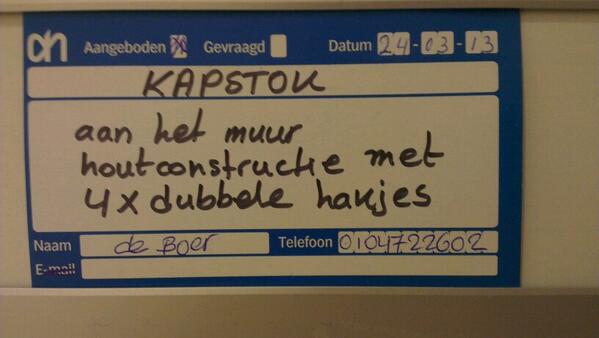 ah Aangeboden Gevraagd Datum 24-03-13
KAPSTOK
aan het muur
houtconstructie met
4x dubbele hakjes
Naam de Boer Telefoon 0104722602
E-mail